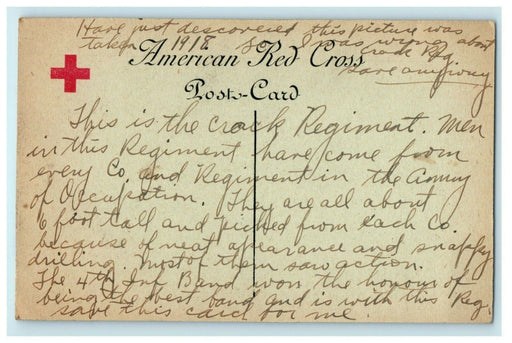 Have just descovered this picture was
taken 1918 so I was wrong about
crack Reg
save anyway
American Red Cross
Post-Card
This is the crack Regiment. Men
in this Regiment have come from
every Co. and Regiment in the Army
of Occupation. They are all about
6 foot tall and picked from each Co.
because of neat apearance and snappy
drilling most of them saw action.
The 4th Inf Band won the honour of
being the best band and is with this Reg.
save this card for me.